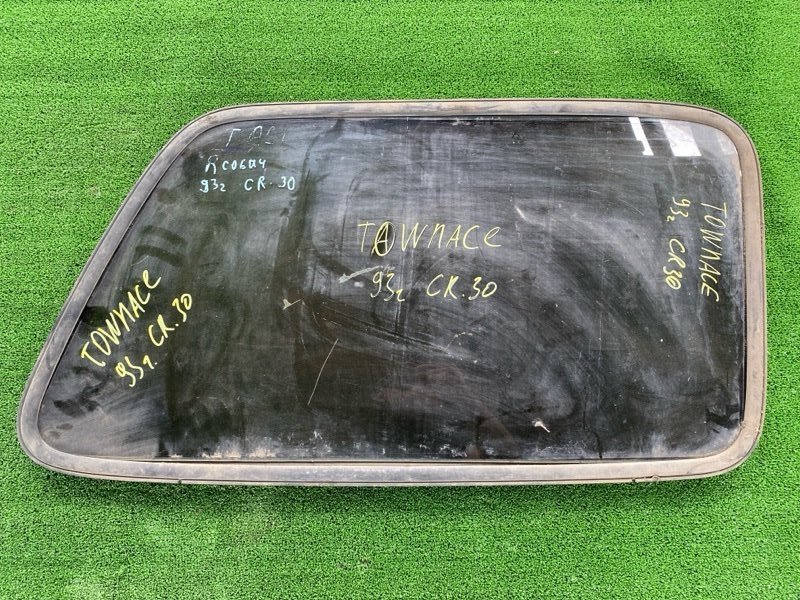 93г CR-30
TOWNACE
93г CR.30
TOWNACE
93г CR30
TOWNACE
93г. CR.30